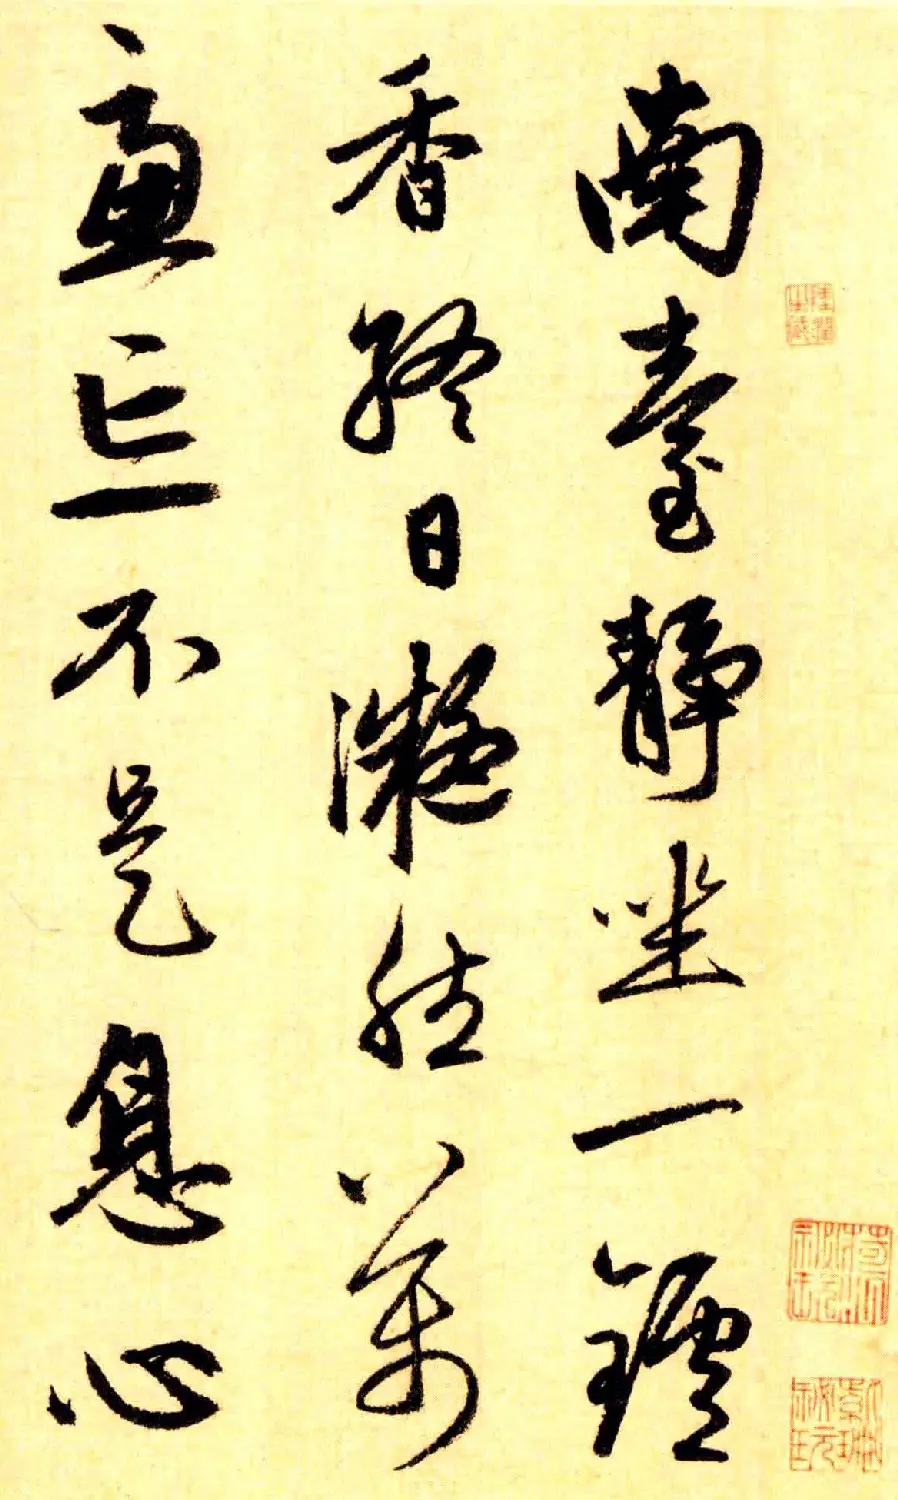 南臺静坐一鑪
香終日凝然萬
慮亡不是息心